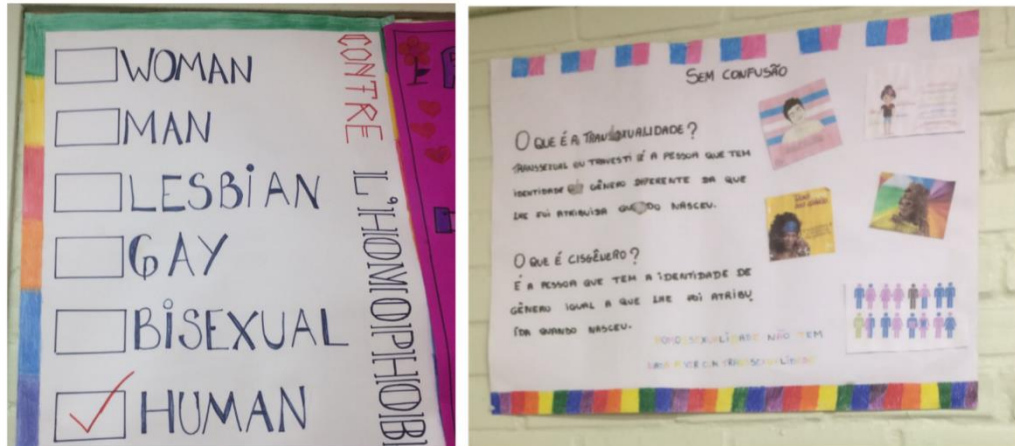 WOMAN
MAN
LESBIAN
GAY
BISEXUAL
HUMAN
CONTRE L'HOMOPHOBI
SEM CONFUSÃO
O QUE É A TRANSEXUALIDADE?
TRANSSEXUAL OU TRAVESTI É A PESSOA QUE TEM
IDENTIDADE DE GÊNERO DIFERENTE DA QUE
LHE FOI ATRIBUIDA QUANDO NASCEU.
O QUE É CISGÊNERO?
É A PESSOA QUE TEM A IDENTIDADE DE
GÊNERO IGUAL A QUE LHE FOI ATRIBU
ÍDA QUANDO NASCEU.
HOMOSSEXUALIDADE NÃO TEM
NADA A VER COM TRANSSEXUALIDADE